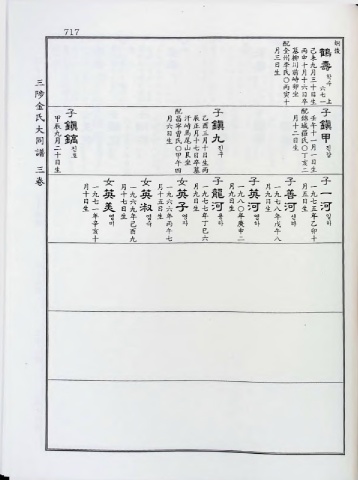 717
三陟金氏大同譜 三卷
炯後
鶴壽 학수 六七一上
己未九月三十日生
丙申十月十六日卒
月三日生
子 鎭甲 진갑
壬午十一月一日生
月十二日生
子 鎭九 진구
乙酉三月十日生丙
辰正月十七日卒墓
月六日生
子 鎭鎬 진호
甲辰九月二十日生
子 一河 일하
一九七五年乙卯十
一月五日生
子 善河 선하
一九七八年戊午八
月九日生
子 英河 영하
一九八〇年庚申二
月九日生
子 龍河 용하
一九七七年丁巳六
月九日生
女 英子 영자
一九六六年丙午七
月十五日生
女 英淑 영숙
一九六九年己酉九
月十七日生
女 英美 영미
一九七一年辛亥十
月十日生